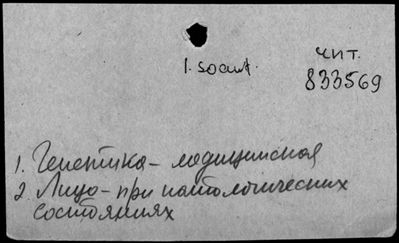 чит.
833569
1. Генетика - медицинская
2. Лицо - при патологических
состояниях